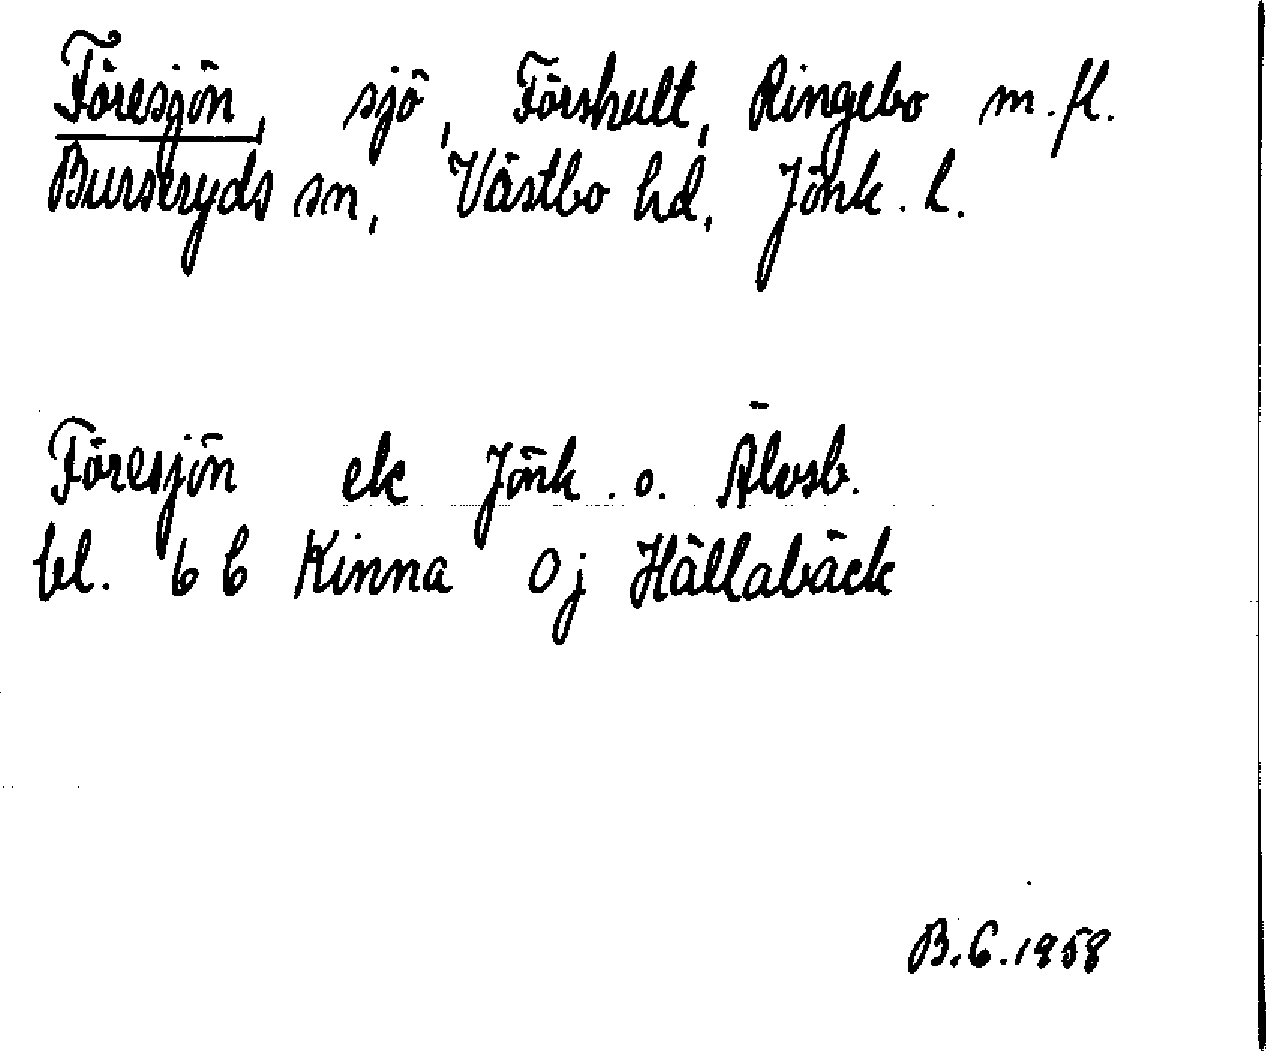 Föresjön, sjö, Förshult, Ringebo m.fl.
Burseryds sn, Västbo hd, Jönk. l.
Föresjön ek Jönk. o. Älvsb.
bl. 6 C Kinna 0j Hällabäck
B.G.1958